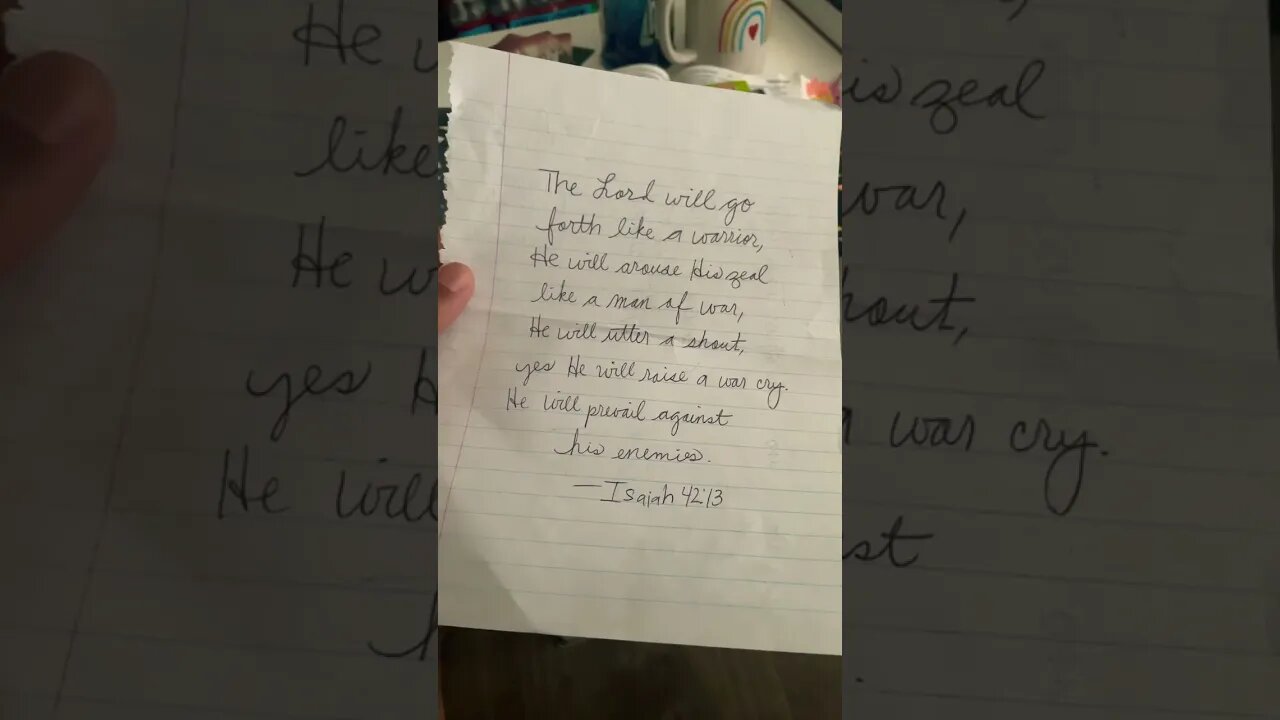 The Lord will go
forth like a warrior,
He will arouse His zeal
like a man of war,
He will utter a shout,
yes He will raise a war cry.
He will prevail against
his enemies.
—Isaiah 42:13